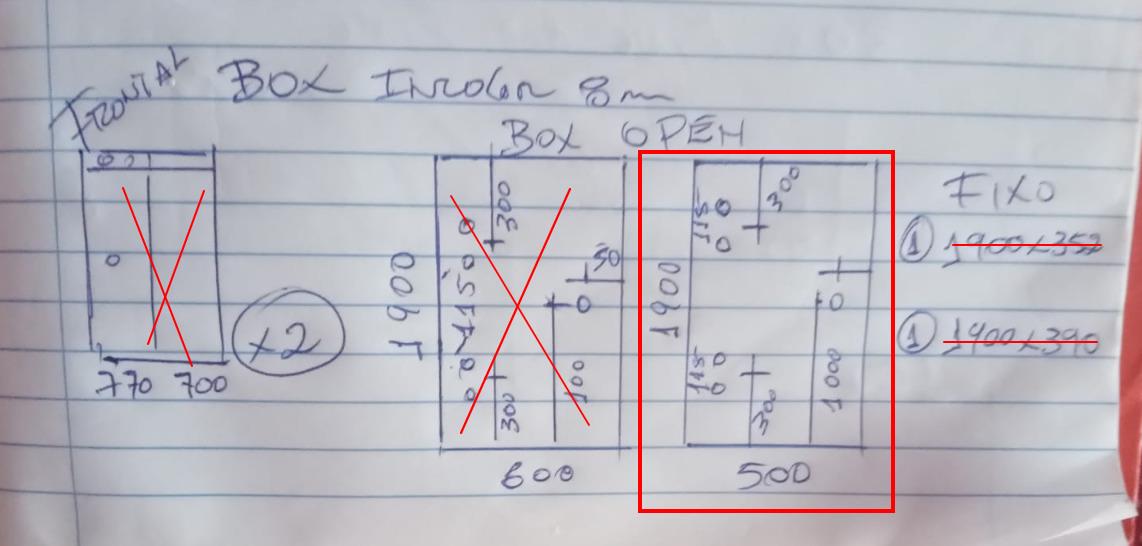 FRONTAL
BOX Incolor 8mm
BOX OPEN
FIXO
300
300
115
50
1900
1150
1900
① 1900x352
① 1900x390
x2
115
300
100
300
1000
770 700
600
500